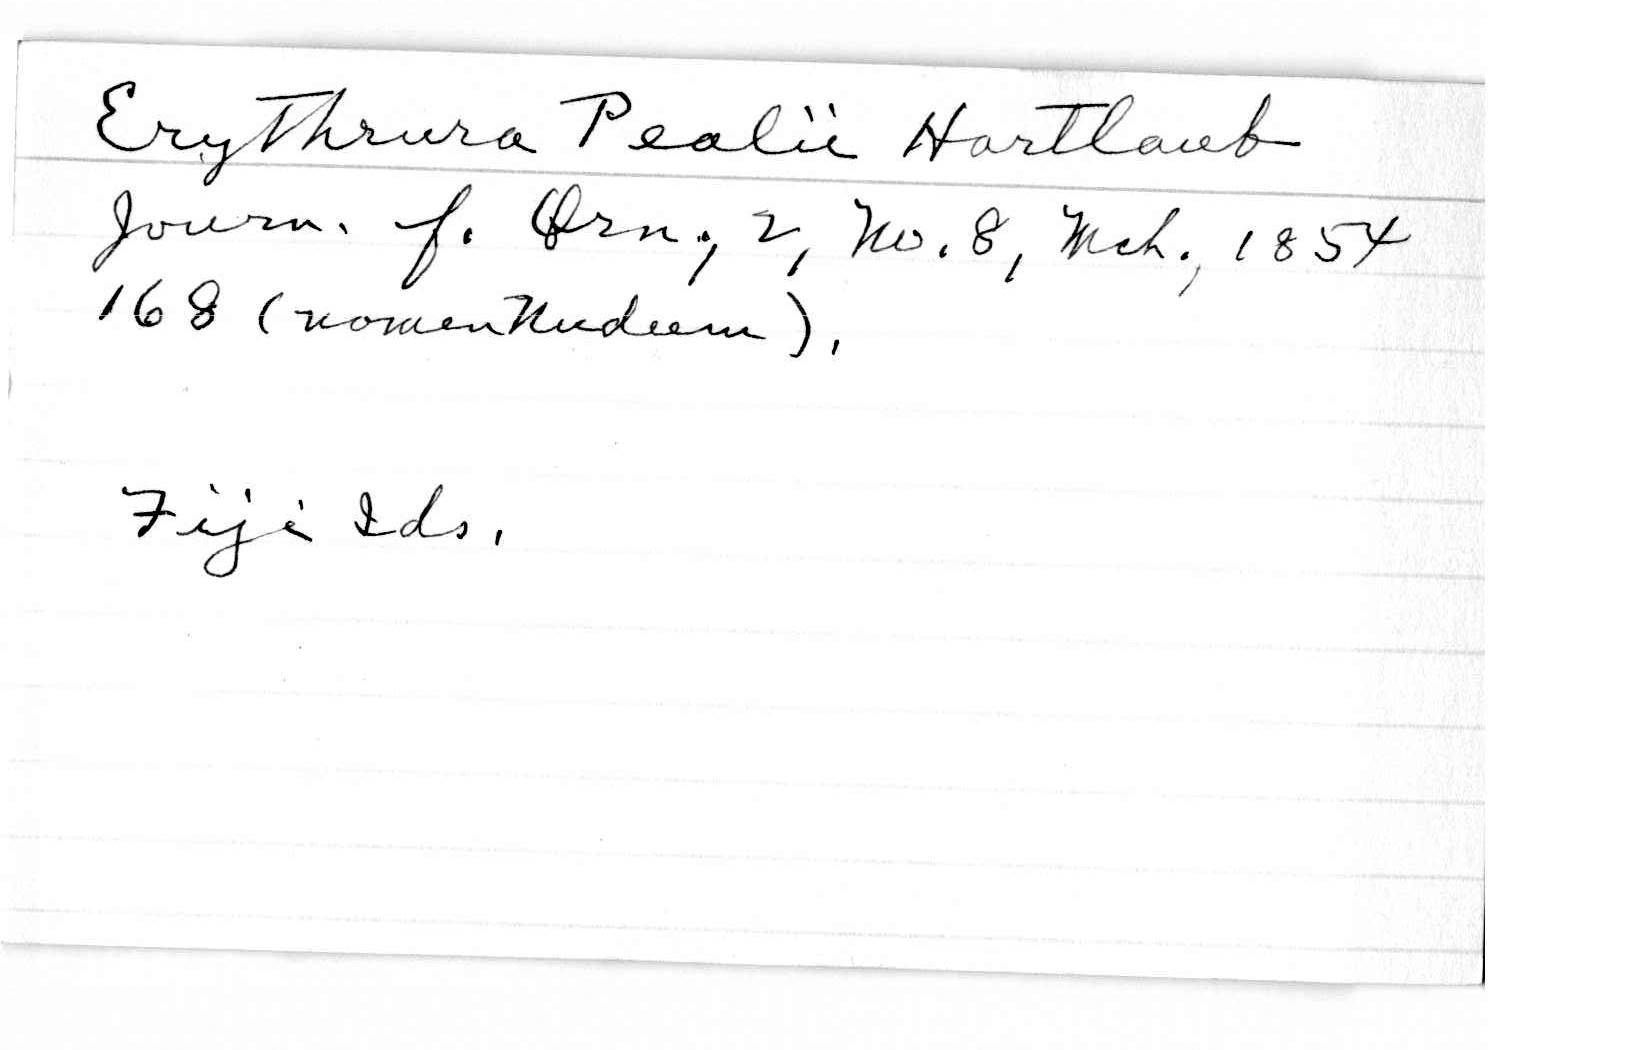 Erythrura Pealii Hartlaub
Journ. f. Orn., 2, No. 8, Mch., 1854
168 (nomen Nudeum).
Fiji Ids.